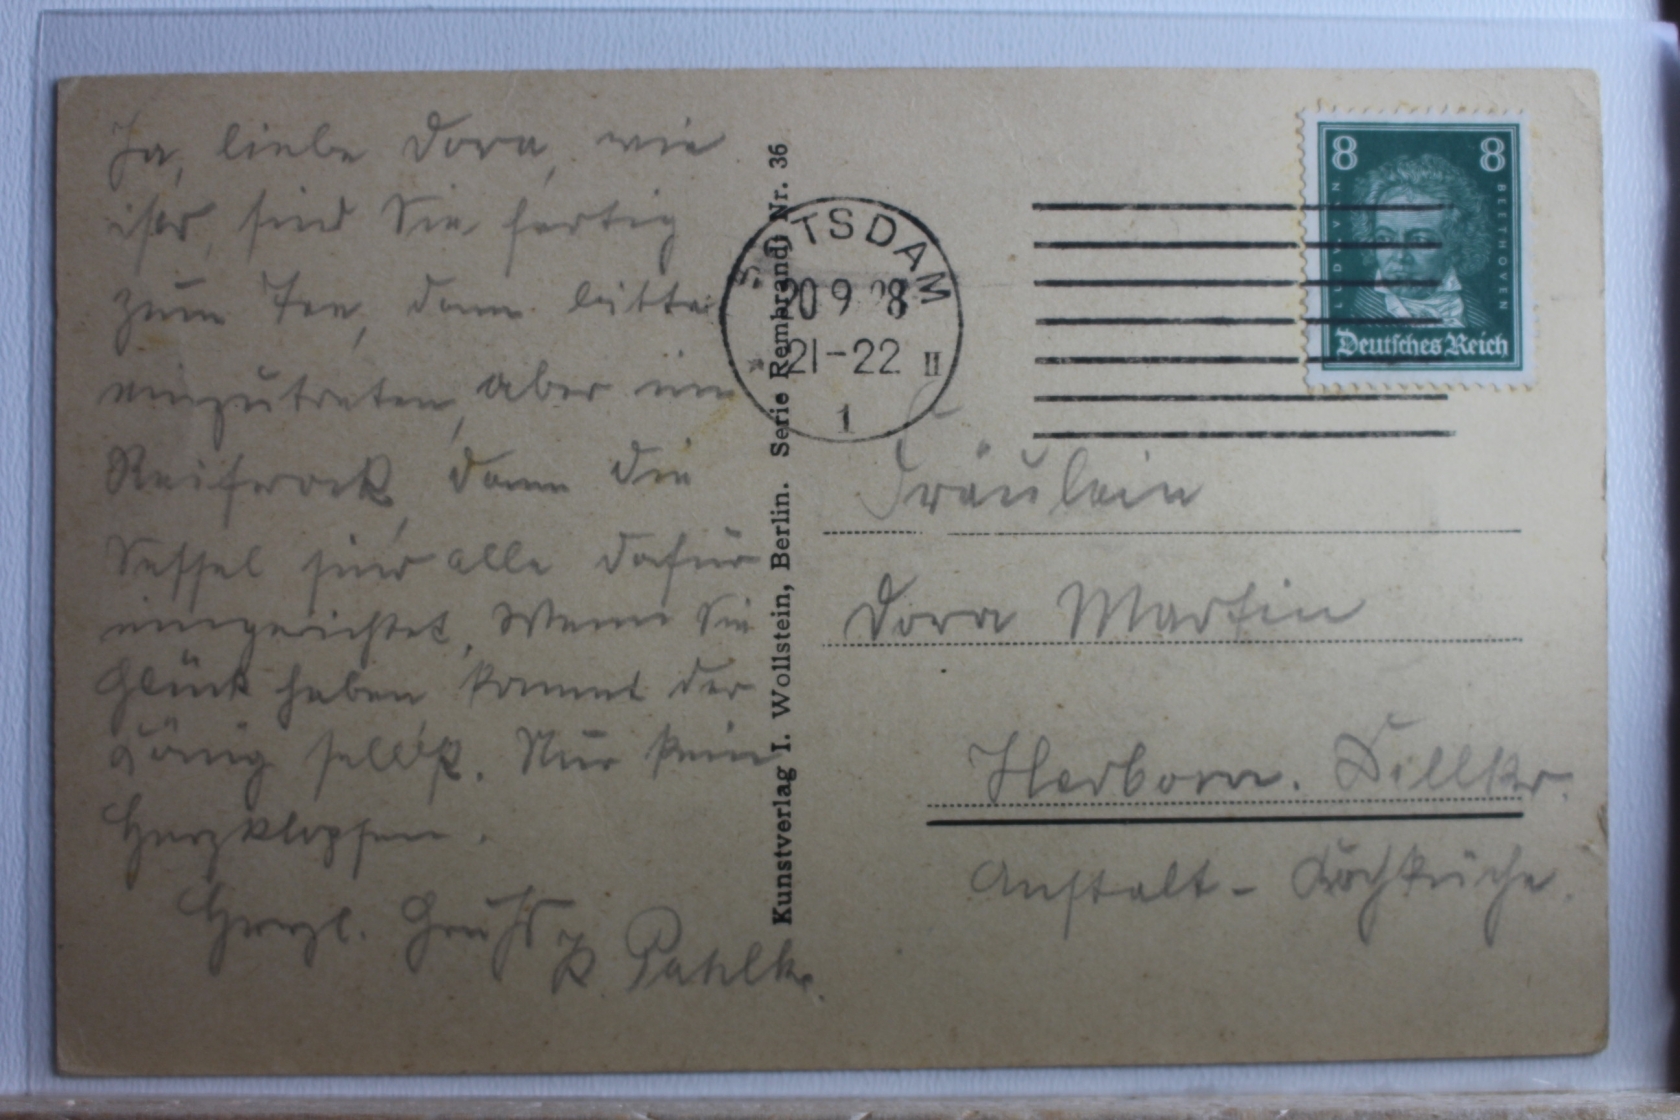 Ja, liebe Dora, wie
ists, sind Sie fertig
zum Tee, dann bitte
einzutreten, aber im
Reifrock, denn die
Sessel sind alle dafür
eingerichtet. Wenn Sie
Glück haben kommt der
König selbst. Nur kein
Herzklopfen.
Herzl. Gruß
Pahlk.
Kunstverlag I. Wollstein, Berlin. Serie Rembrandt Nr. 36
POTSDAM
20 9 28
* 21-22 II
1
8 8
LUDWIG VAN
BEETHOVEN
Deutsches Reich
Fräulein
Dora Martin
Herborn. Dillkr.
Anstalt - Kochküche.